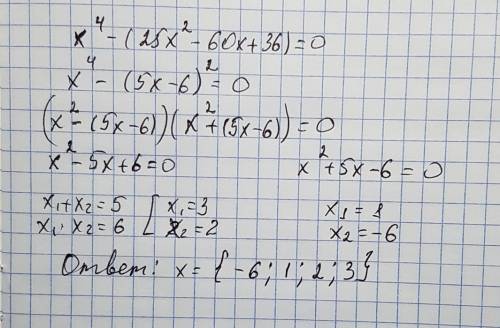 x⁴ - (25x² - 60x + 36) = 0
x⁴ - (5x - 6)² = 0
(x² - (5x - 6))(x² + (5x - 6)) = 0
x² - 5x + 6 = 0 x² + 5x - 6 = 0
x₁ + x₂ = 5 [ x₁ = 3 x₁ = 1
x₁ · x₂ = 6 [ x₂ = 2 x₂ = -6
Ответ: x = {-6; 1; 2; 3}